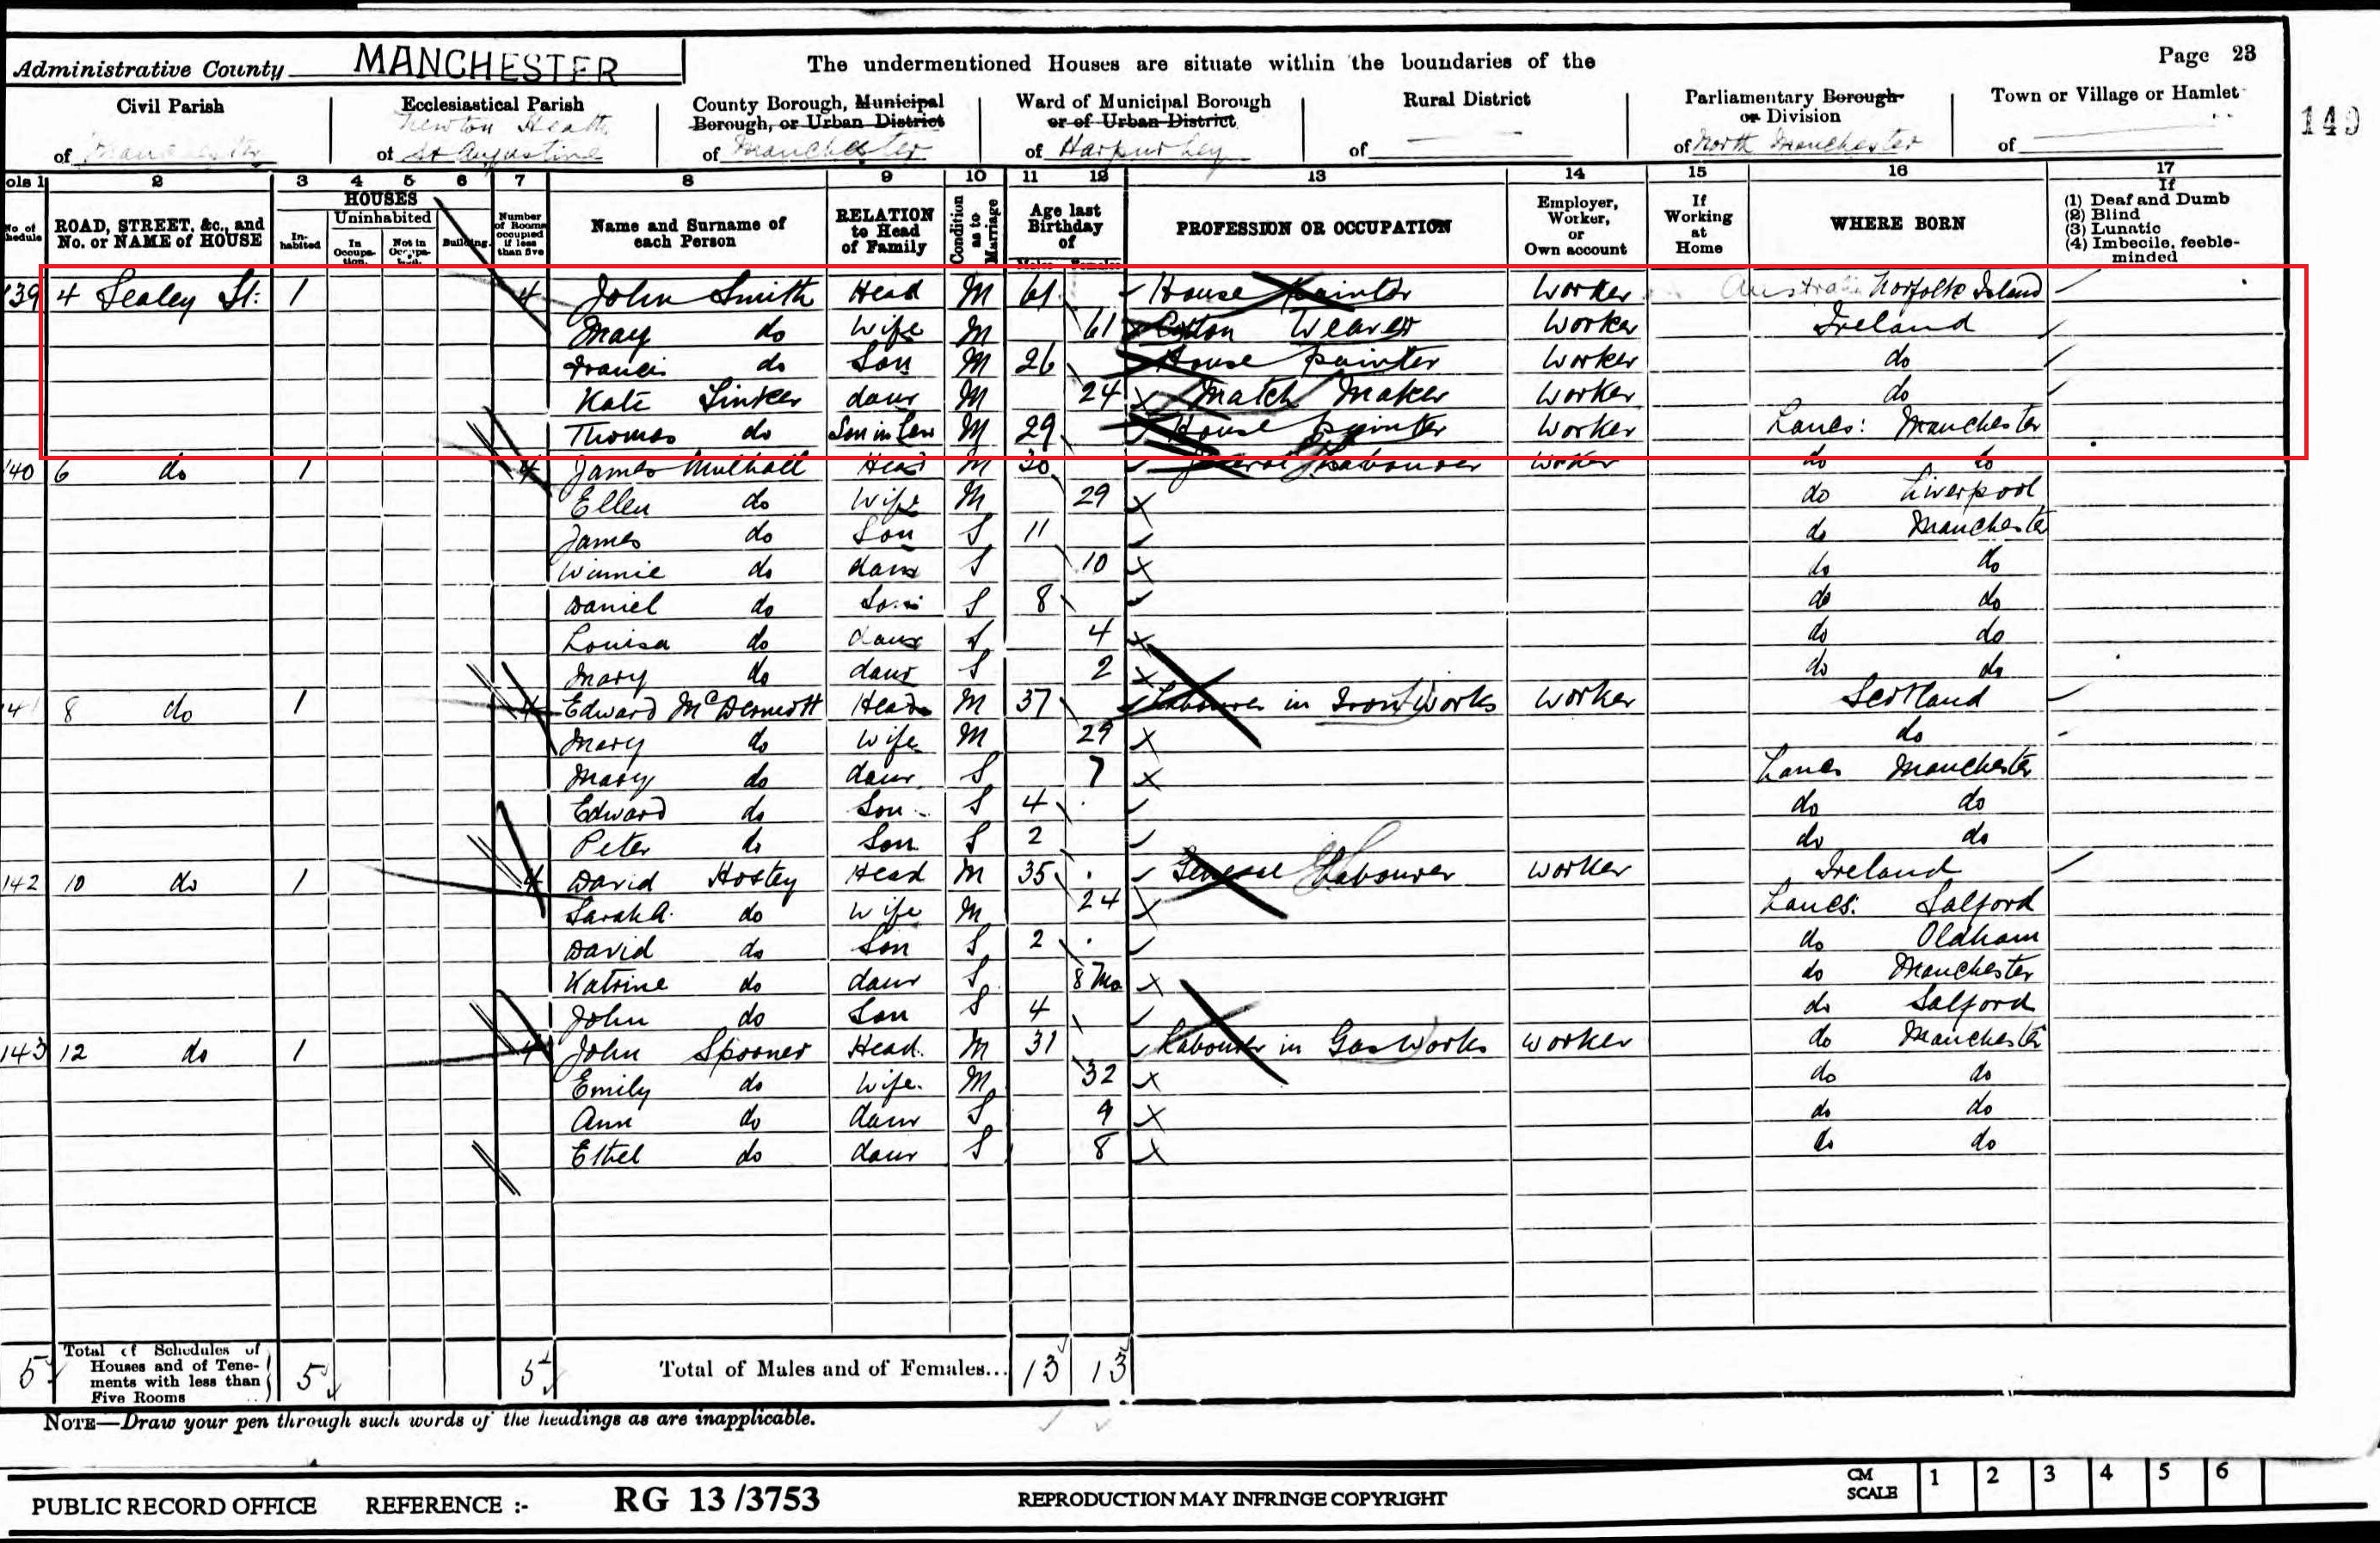 Administrative County MANCHESTER The undermentioned Houses are situate within the boundaries of the Page 23
Civil Parish Ecclesiastical Parish County Borough, Municipal Borough, or Urban District Ward of Municipal Borough or of Urban District Rural District Parliamentary Borough or Division Town or Village or Hamlet
Newton Heath
of Manchester of St Augustine of Manchester of Harpurhey of of North Manchester of
149
Cols 1 2 3 4 5 6 7 8 9 10 11 12 13 14 15 16 17
No of Schedule ROAD, STREET, &c., and No. or NAME of HOUSE HOUSES Inhabited Uninhabited In Occupation. Not in Occupation. Building. Number of Rooms occupied if less than five Name and Surname of each Person RELATION to Head of Family Condition as to Marriage Age last Birthday of Males Females PROFESSION OR OCCUPATION Employer, Worker, or Own account If Working at Home WHERE BORN If (1) Deaf and Dumb (2) Blind (3) Lunatic (4) Imbecile, feeble-minded
139 4 Sealey St: 1 4 John Smith Head M 61 House Painter Worker Australia Norfolk Island
Mary do Wife M 61 Cotton Weaver Worker Ireland
Francis do Son M 26 House painter Worker do
Kate Linker daur M 24 Match Maker Worker do
Thomas do Son in Law M 29 House painter Worker Lancs: Manchester
140 6 do 1 4 James Mulhall Head M 30 General Labourer Worker do do
Ellen do Wife M 29 do Liverpool
James do Son S 11 do Manchester
Winnie do daur S 10 do do
Daniel do Son S 8 do do
Louisa do daur S 4 do do
Mary do daur S 2 do do
141 8 do 1 4 Edward McDermott Head M 37 Labourer in Iron Works Worker Scotland
Mary do Wife M 29 do
Mary do daur S 7 Lancs Manchester
Edward do Son S 4 do do
Peter do Son S 2 do do
142 10 do 1 4 David Hosty Head M 35 General Labourer Worker Ireland
Sarah A. do Wife M 24 Lancs: Salford
David do Son S 2 do Oldham
Katrine do daur S 8 Mo do Manchester
John do Son S 4 do Salford
143 12 do 1 4 John Spooner Head. M 31 Labourer in Gas Works Worker do Manchester
Emily do Wife. M 32 do do
Ann do daur S 9 do do
Ethel do daur S 8 do do
5 Total of Schedules of Houses and of Tenements with less than Five Rooms 5 5 Total of Males and of Females... 13 13
NOTE—Draw your pen through such words of the headings as are inapplicable.
PUBLIC RECORD OFFICE REFERENCE :- RG 13/3753 REPRODUCTION MAY INFRINGE COPYRIGHT CM SCALE 1 2 3 4 5 6